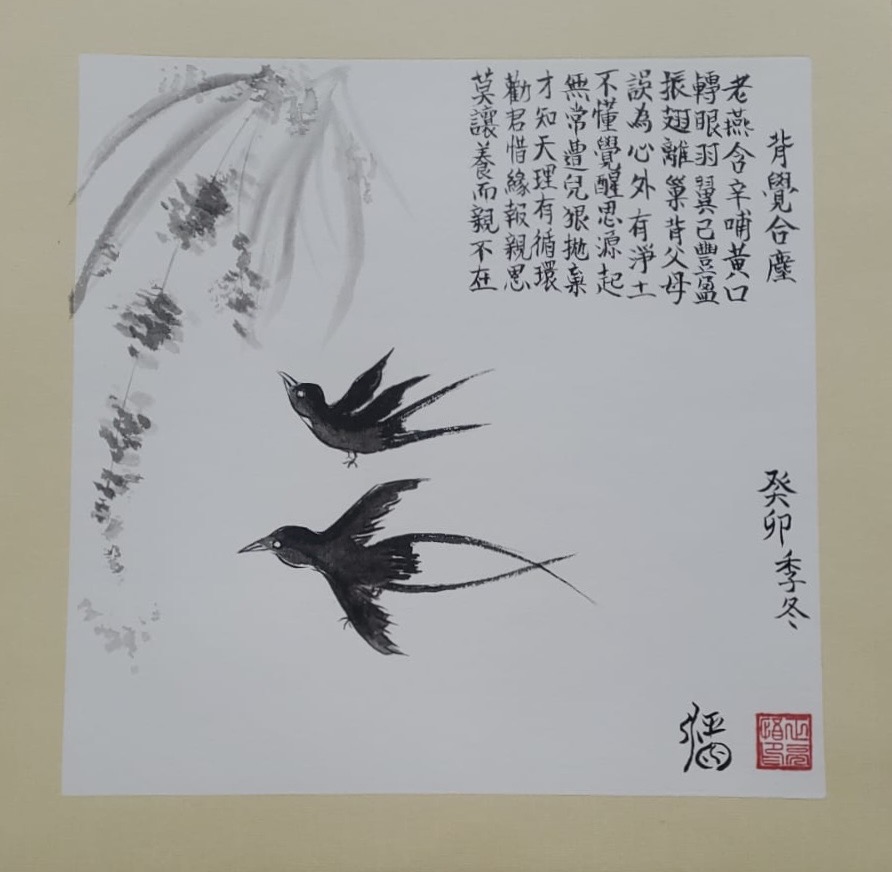 背覺合塵
老燕含辛哺黃口
轉眼羽翼已豐盈
振翅離巢背父母
誤為心外有淨土
不懂覺醒思源起
無常遭兒狠拋棄
才知天理有循環
勸君惜緣報親思
莫讓養而親不在
癸卯季冬